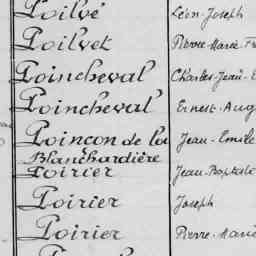 Poilvé Léon-Joseph
Poilvet Pierre-Marie-
Poincheval Charles-Jean-
Poincheval Ernest-Aug
Poinçon de la Jean-Emile
Blanchardière
Poirier Jean-Baptiste
Poirier Joseph
Poirier Pierre-Marie